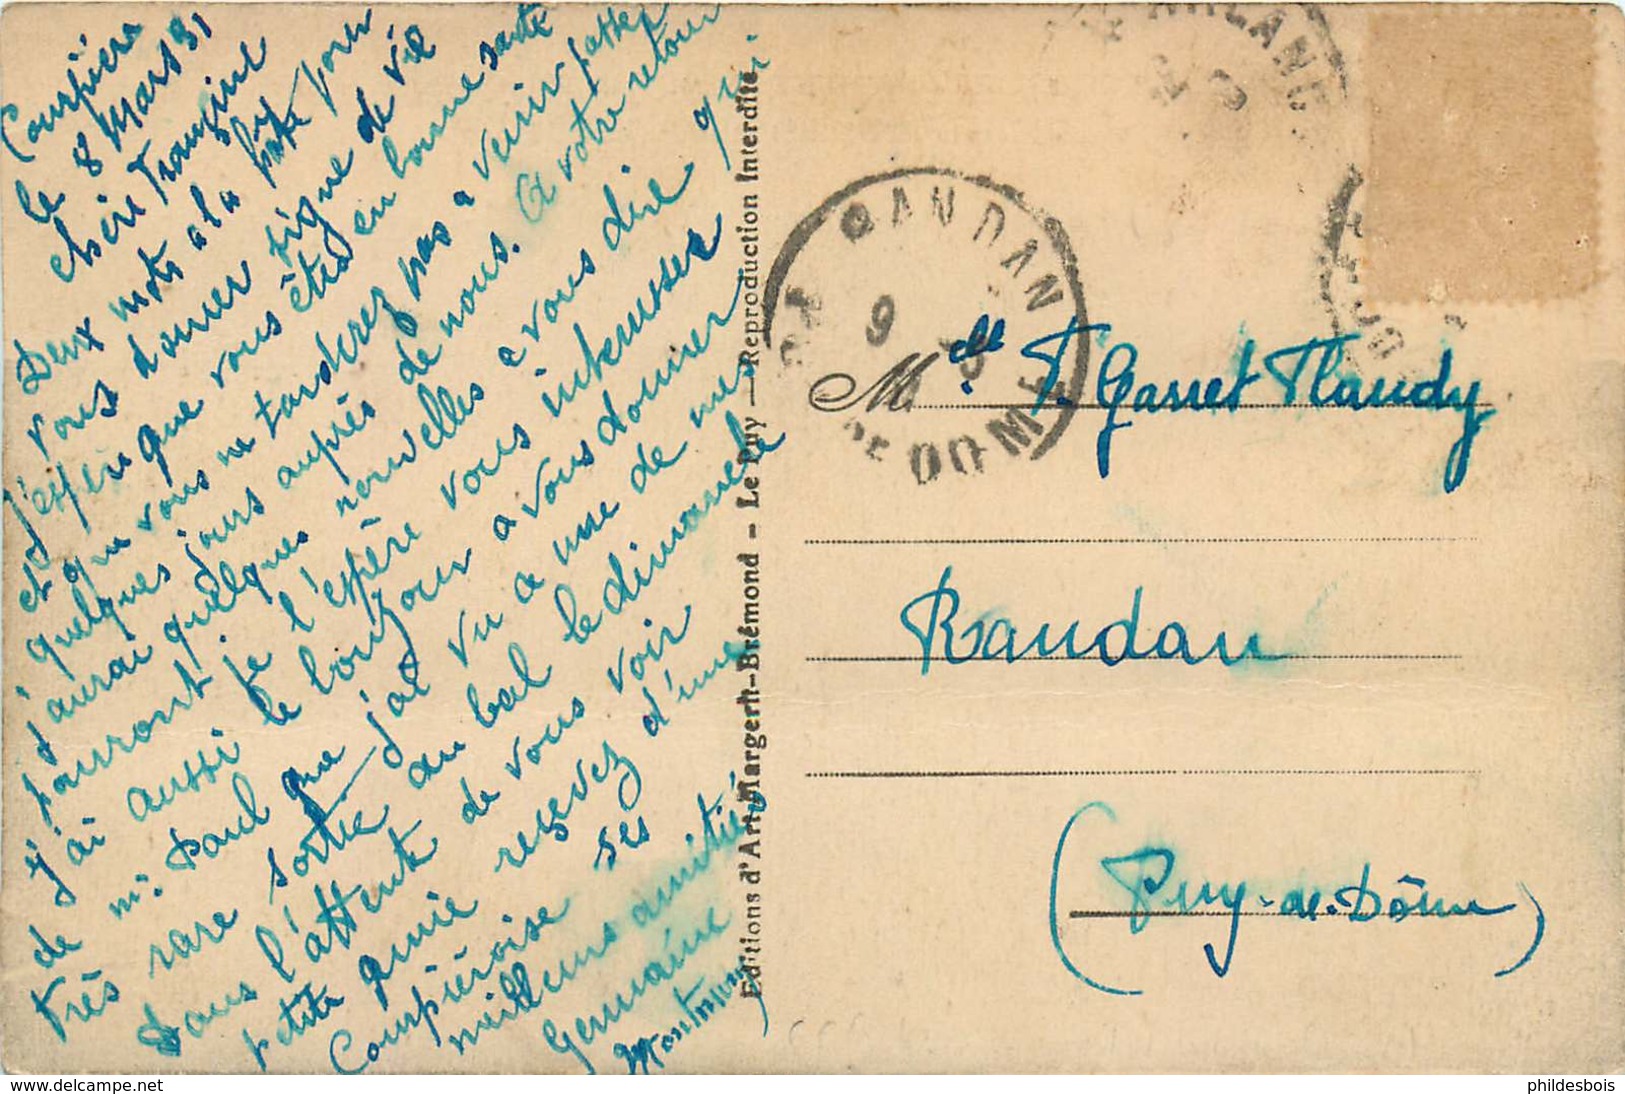 Courpière
le 8 Mars 31
Chère Françine
Deux mots a la hâte pour
vous donner signe de vie
j'espère que vous êtes en bonne santé
et que vous ne tarderez pas a venir passer
quelques jours auprès de nous. A votre retour
j'aurai quelques nouvelles a vous dire qui
pourront je l'espère vous interesser
j'ai aussi le bonjour a vous donner
de Mr Paul que j'ai vu a une de mes
très rare sortie au bal le dimanche
Dans l'attente de vous voir
petite amie recevez d'une
Courpièroise ses
meilleurs amitiés
Germaine
Montmory
Editions d'Art Margerit-Brémond - Le Puy — Reproduction Interdite
RANDAN
9
PUY DE DOME
ARLANC
Mlle F. Garret Flaudy
Randan
(Puy-de-Dôme)
www.delcampe.net
phildesbois